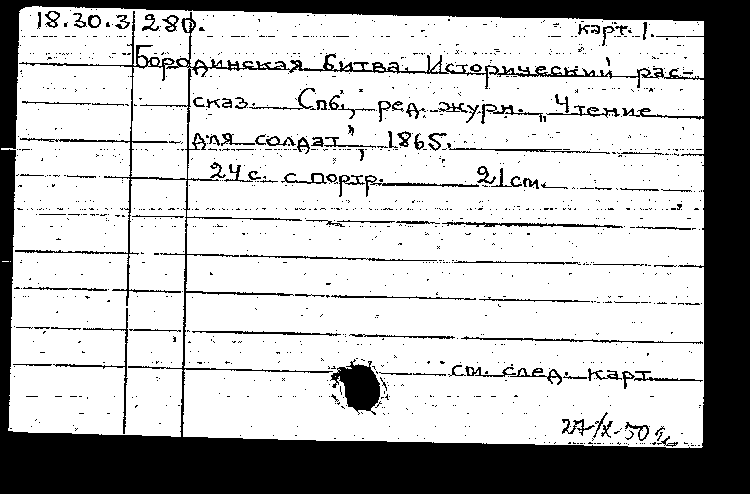 18.30.3 280. карт. 1.
Бородинская битва. Исторический рас-
сказ. Спб., ред. журн. „Чтение
для солдат", 1865.
24 с. с портр. 21 см.
см. след. карт.
27/X-50 г.